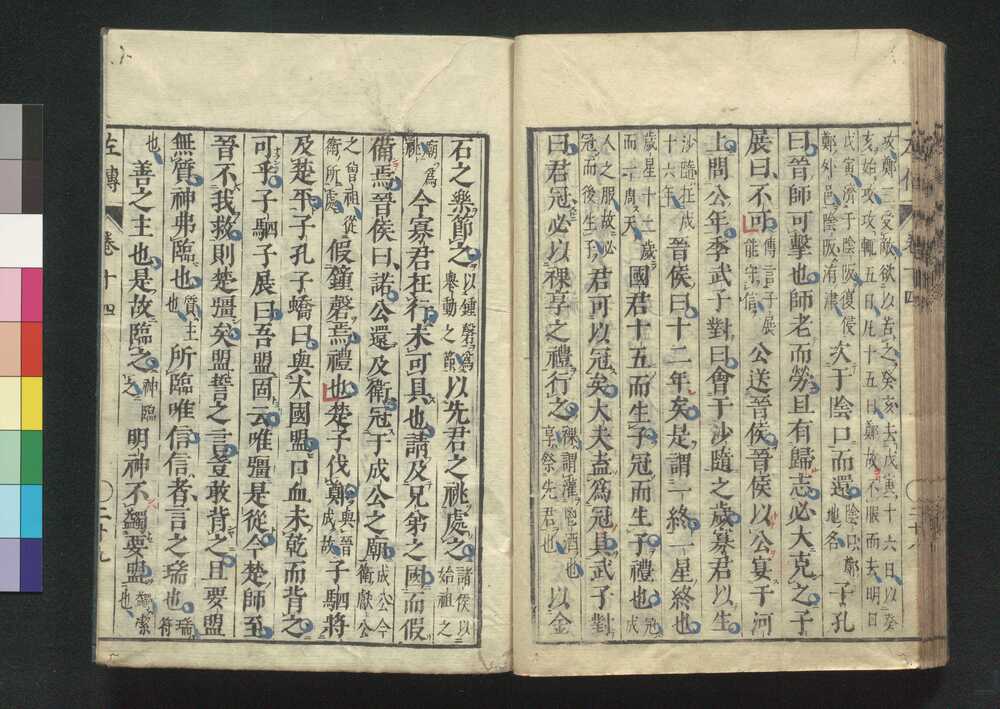 攻鄭三受敵欲以苦之癸亥去戊寅十六日以癸
亥始攻攻輒五日凡十五日鄭故不服而去明日
戊寅濟于陰阪復侵
鄭外邑陰阪洧津
次于陰口而還
陰口鄭
地名
子孔
曰晉師可擊也師老而勞且有歸志必大克之子
展曰不可
傳言子展
能守信
公送晉侯晉侯以公宴于河
上問公年季武子對曰會于沙隨之歲寡君以生
沙隨在成
十六年
晉侯曰十二年矣是謂一終一星終也
歲星十二歲
而一周天
國君十五而生子冠而生子禮也
冠成
人之服故必
冠而後生子
君可以冠矣大夫盍爲冠具武子對
曰君冠必以祼享之禮行之
祼謂灌鬯酒也
享祭先君也
以金
石之樂節之
以鍾磬爲
舉動之節
以先君之祧處之
諸侯以
始祖之
廟爲
祧
今寡君在行未可具也請及兄弟之國而假
備焉晉侯曰諾公還及衛冠于成公之廟
成公今
衛獻公
之曾祖從
衛所處
假鐘磬焉禮也楚子伐鄭
與晉
成故
子駟將
及楚平子孔子蟜曰與大國盟口血未乾而背之
可乎子駟子展曰吾盟固云唯彊是從今楚師至
晉不我救則楚彊矣盟誓之言豈敢背之且要盟
無質神弗臨也
質主
也
所臨唯信信者言之瑞也
瑞符
也
善之主也是故臨之
神臨
之
明神不蠲要盟
蠲潔
也
左傳 卷十四 二十九